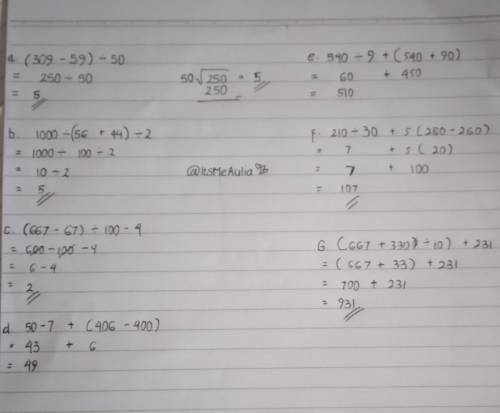 a. (309 - 59) ÷ 50
= 250 ÷ 50
= 5
50√250 = 5
250
b. 1000 ÷ (56 + 44) ÷ 2
= 1000 ÷ 100 ÷ 2
= 10 ÷ 2
= 5
@itsMeAulia
c. (667 - 67) ÷ 100 - 4
= 600 ÷ 100 - 4
= 6 - 4
= 2
d. 50 - 7 + (406 - 400)
= 43 + 6
= 49
e. 540 ÷ 9 + (540 + 90)
= 60 + 450
= 510
F. 210 ÷ 30 + 5 (280 - 260)
= 7 + 5 (20)
= 7 + 100
= 107
G (667 + 330) ÷ 10) + 231
= (667 + 33) + 231
= 700 + 231
= 931